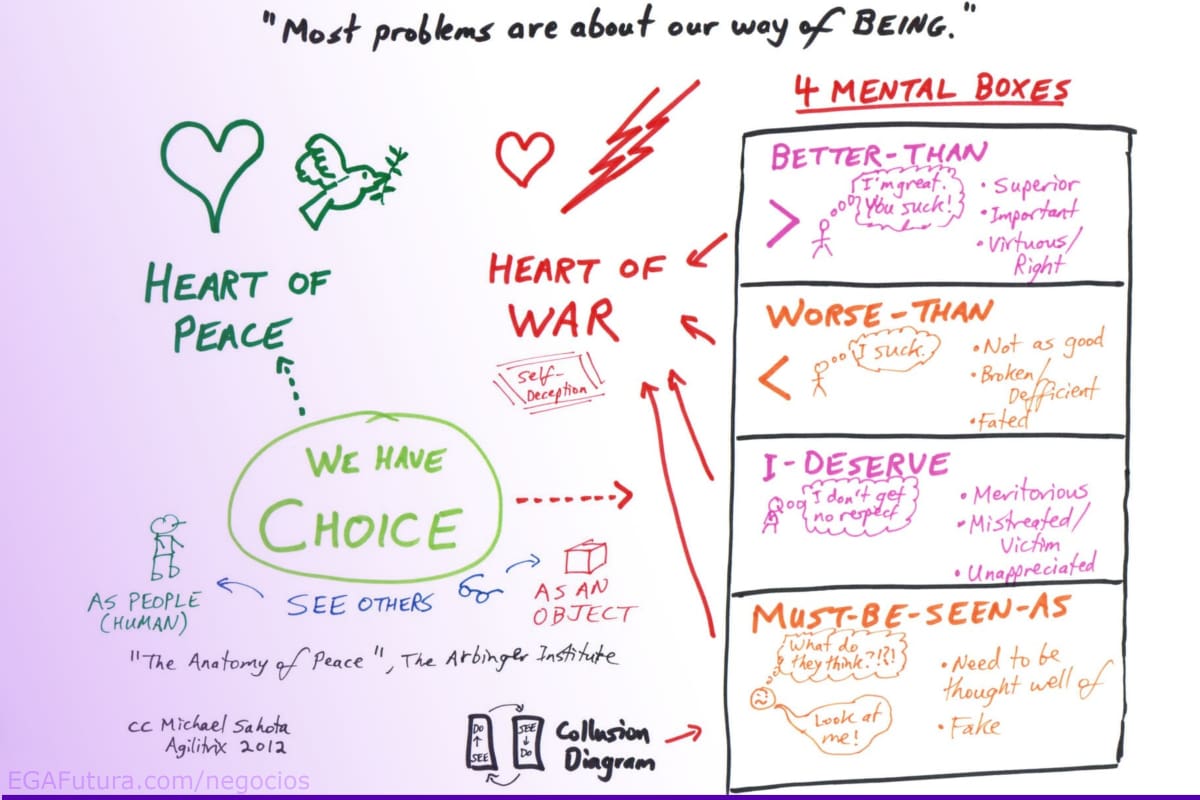 "Most problems are about our way of BEING."
HEART OF
PEACE
HEART OF
WAR
Self-
Deception
WE HAVE
CHOICE
AS PEOPLE
(HUMAN)
SEE OTHERS
AS AN
OBJECT
"The Anatomy of Peace", The Arbinger Institute
cc Michael Sahota
Agilitrix 2012
DO
SEE
SEE
DO
Collusion
Diagram
4 MENTAL BOXES
BETTER-THAN
>
I'm great.
You suck!
• Superior
• Important
• Virtuous/
Right
WORSE-THAN
<
I suck.
• Not as good
• Broken/
Defficient
• Fated
I-DESERVE
I don't get
no respect
• Meritorious
• Mistreated/
Victim
• Unappreciated
MUST-BE-SEEN-AS
What do
they think?!?!
Look at
me!
• Need to be
thought well of
• Fake
EGAFutura.com/negocios